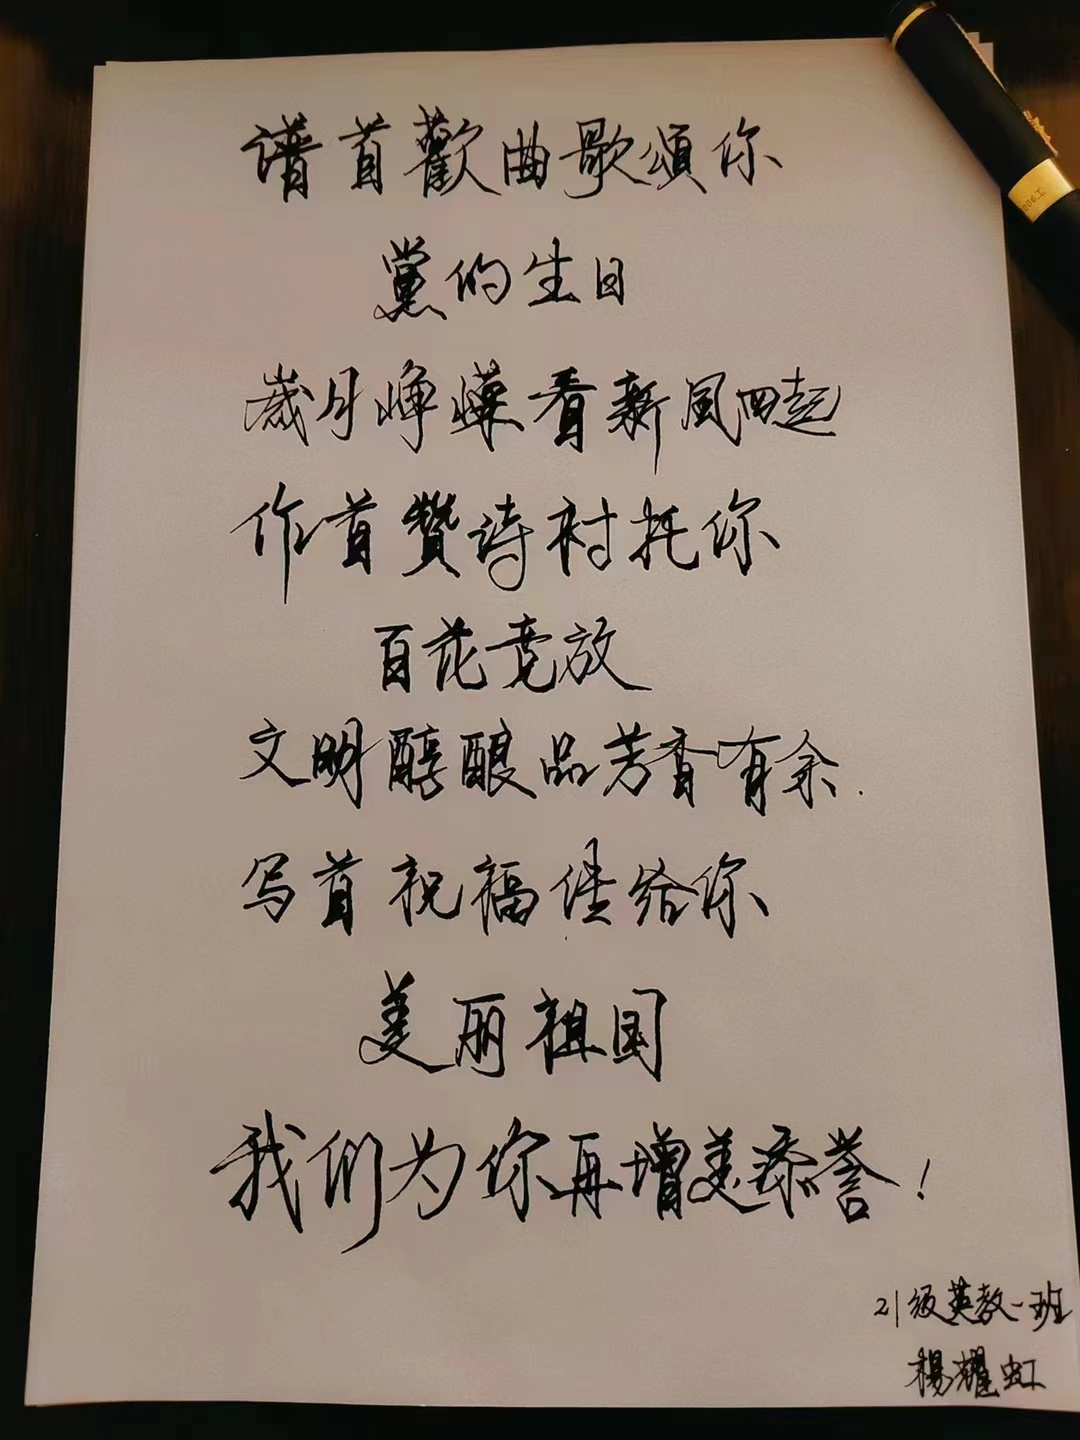 谱首歡曲歌頌你
黨的生日
歲月峥嶸看新風四起
作首贊诗衬托你
百花竞放
文明醇酿品芳香有余
写首祝福佳给你
美丽祖国
我们为你再增美添誉!
21级英教一班
楊耀虹